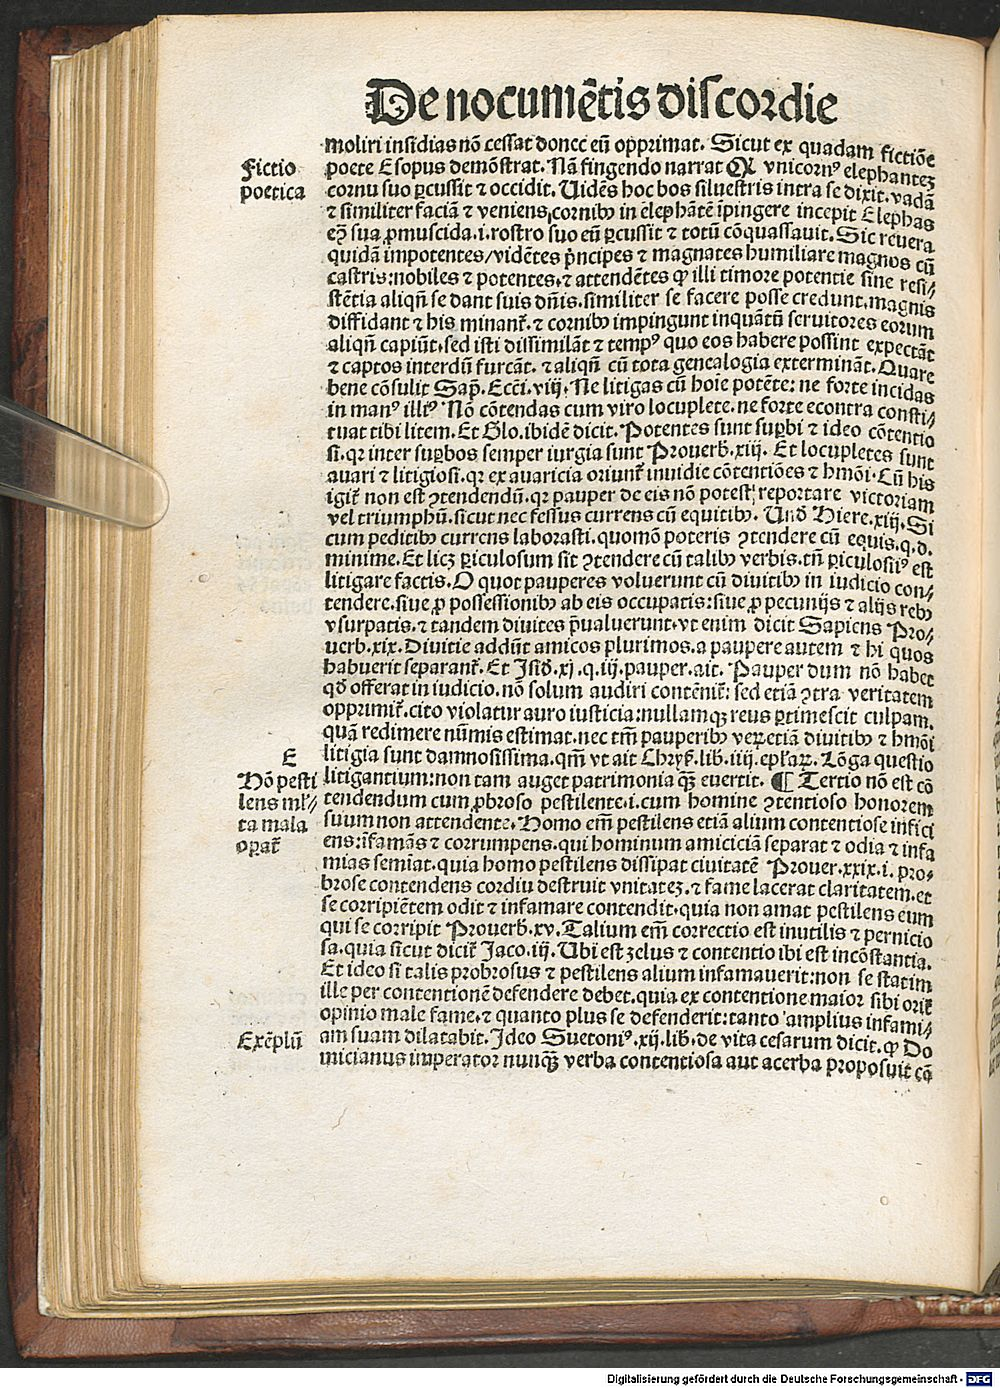 De nocumētis discordie
moliri insidias nō cessat donec eū opprimat. Sicut ex quadam fictiōe
Fictio
poetica
poete Esopus demōstrat. Nā fingendo narrat Ꝙ vnicornꝰ elephantez
cornu suo ꝑcussit ⁊ occidit. Uidēs hoc bos siluestris intra se dixit. vadā
⁊ similiter faciā ⁊ veniens cornibꝫ in elephātē īpingere incepit Elephas
eꝫ sua ꝓmuscida .i. rostro suo eū ꝑcussit ⁊ totū cōquassauit. Sic reuera
quidā impotentes/vidētes p̄ncipes ⁊ magnates humiliare magnos cū
castris: nobiles ⁊ potentes. ⁊ attendētes ꝙ illi timore potentie sine resi/
stētia aliqn̄ se dant suis dn̄is. similiter se facere posse credunt. magnis
diffidant ⁊ his minant᷑. ⁊ cornibꝫ impingunt inquātū seruitores eorum
aliqn̄ capiūt. sed isti dissimilāt ⁊ tempꝰ quo eos habere possint expectāt
⁊ captos interdū furcāt. ⁊ aliqn̄ cū tota genealogia extermināt. Quare
bene cōsulit Sap. Ecci. viij. Ne litigas cū hoīe potēte: ne forte incidas
in manꝰ illiꝰ Nō cōtendas cum viro locuplete. ne forte econtra consti/
tuat tibi litem. Et Glo. ibidē dicit. Potentes sunt suꝑbi ⁊ ideo cōtentio
si. qr inter suꝑbos semper iurgia sunt Prouerb̄. xiij. Et locupletes sunt
auari ⁊ litigiosi. qr ex auaricia oriunt᷑ inuidie cōtentiōes ⁊ hmōi. Cū his
igit᷑ non est ꝯtendendū. qr pauper de eis nō potest reportare victoriam
vel triumphū. sicut nec fessus currens cū equitibꝫ. Und̄ Hiere. xij. Si
cum peditibꝫ currens laborasti. quomō poteris ꝯtendere cū equis. q. d.
minime. Et licꝫ ꝑiculosum sit ꝯtendere cū talibꝫ verbis. tn̄ ꝑiculosiꝰ est
litigare factis. O quot pauperes voluerunt cū diuitibꝫ in iudicio con/
tendere. siue ꝓ possessionibꝫ ab eis occupatis: siue ꝓ pecunijs ⁊ alijs rebꝫ
vsurpatis. ⁊ tandem diuites p̄ualuerunt. vt enim dicit Sapiens Pro/
uerb. xix. Diuitie addūt amicos plurimos. a paupere autem ⁊ hi quos
habuerit separant᷑. Et Isid̄. xj. q. iij. pauper. ait. Pauper dum nō habet
qd̄ offerat in iudicio. nō solum audiri contēnit᷑: sed etiā ꝯtra veritatem
opprimit᷑. cito violatur auro iusticia: nullamqꝫ reus ꝑtimescit culpam.
quā redimere nūmis estimat. nec tm̄ pauperibꝫ veꝝetiā diuitibꝫ ⁊ hmōi
E
litigia sunt damnosissima. qm̄ vt ait Chrys. lib. iiij. epl̄aꝝ. Lōga questio
Hō pesti
lens ml̄/
ta mala
oꝑat᷑
litigantium: non tam auget patrimonia qꝫ euertit. ¶ Tertio nō est cō
tendendum cum ꝓbroso pestilente .i. cum homine ꝯtentioso honorem
suum non attendente. Homo em̄ pestilens etiā alium contentiose infici
ens: īfamās ⁊ corrumpens. qui hominum amiciciā separat ⁊ odia ⁊ infa
mias semiat. quia homo pestilens dissipat ciuitatē Prouer. xxix. i. pro/
brose contendens cordiu destruit vnitatez. ⁊ fame lacerat claritatem. et
se corripiētem odit ⁊ infamare contendit. quia non amat pestilens eum
qui se corripit Prouerb̄. xv. Talium em̄ correctio est inutilis ⁊ pernicio
sa. quia sicut dicit᷑ Jaco. iij. Ubi est zelus ⁊ contentio ibi est incōstantia.
Et ideo si talis probrosus ⁊ pestilens alium infamauerit: non se statim
ille per contentionē defendere debet. quia ex contentione maior sibi orit᷑
opinio male fame. ⁊ quanto plus se defenderit: tanto amplius infami/
Exēplū
am suam dilatabit. Ideo Suetoniꝰ. xij. lib. de vita cesarum dicit. ꝙ Do
micianus imperator nunqꝫ verba contentiosa aut acerba proposuit cō
Digitalisierung gefördert durch die Deutsche Forschungsgemeinschaft - DFG